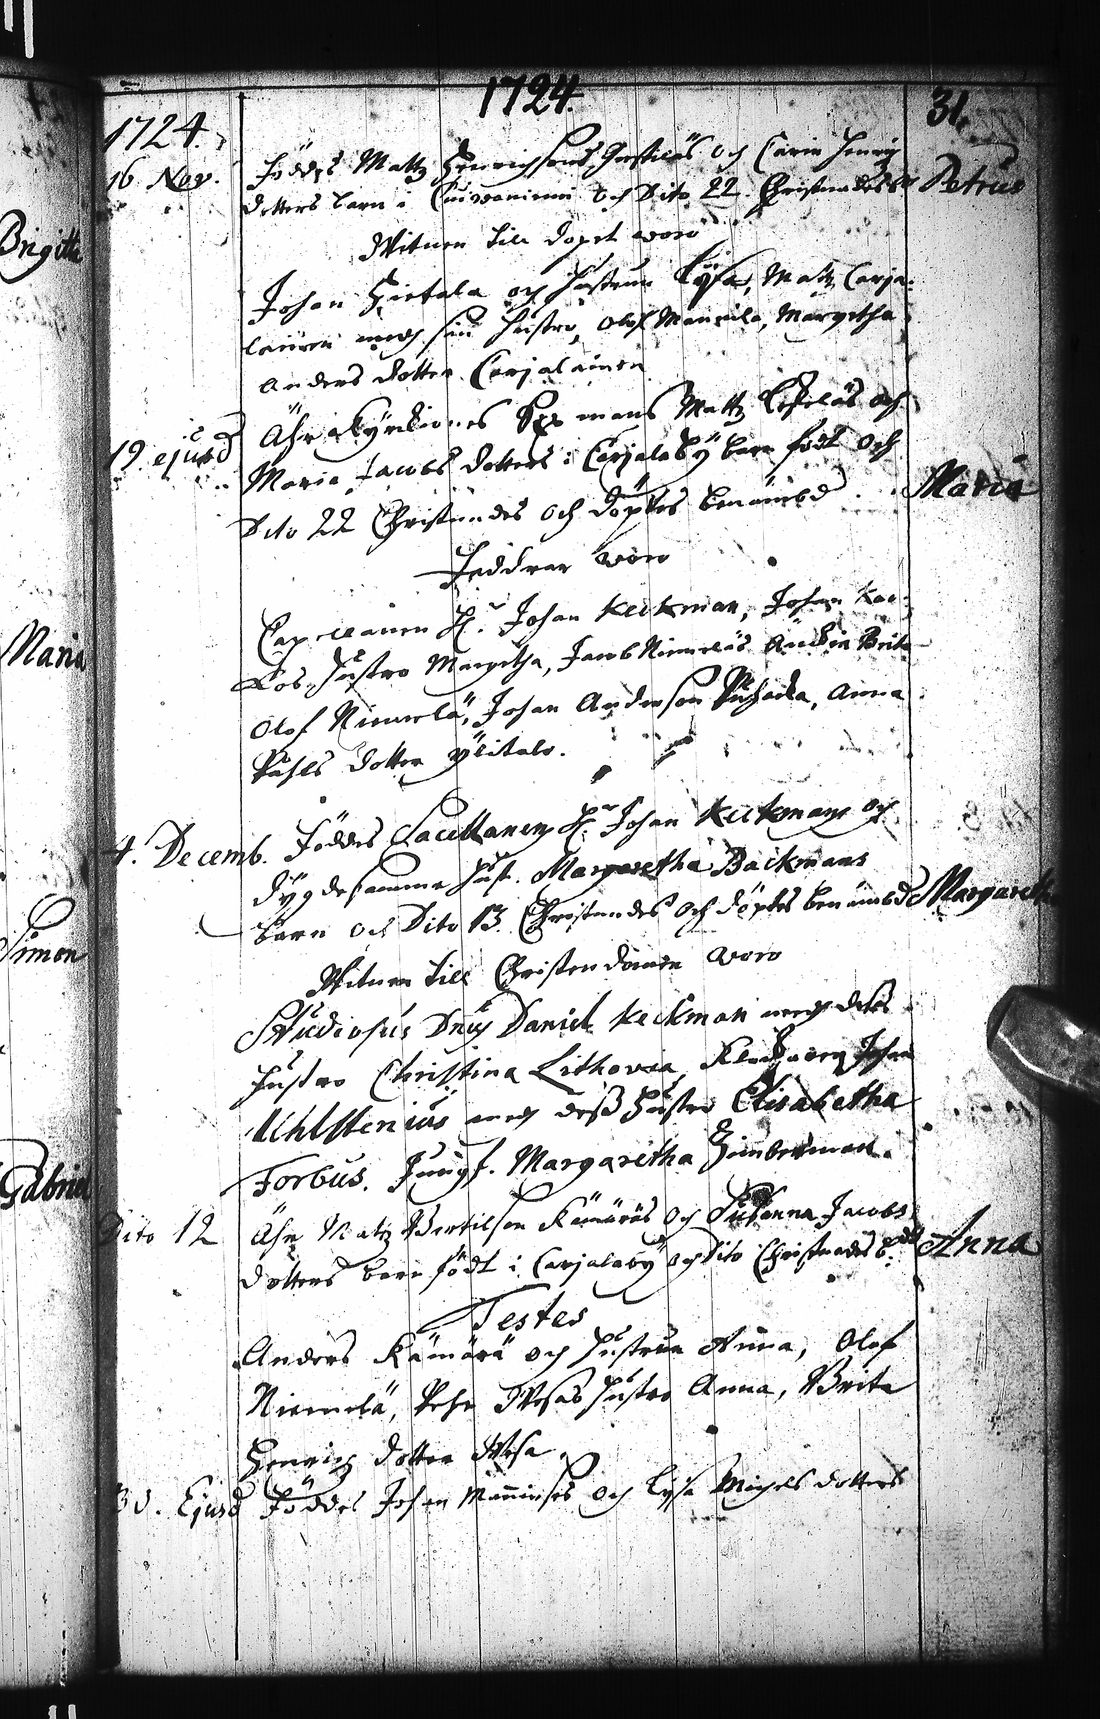 1724.
31.
1724.
16 Nov. Föddes Matts Henrichsons och Carin Henrich
dotters barn i och Dito 22. Christnades Petrus
Witnen till dopet woro
Johan Hietala och hustrun Lysa, Matts Carja-
lainen med sin hustro, Olof Mannila, Margetha
Anders dotter Carjalainen
19 ejusd Ähr kyrkiones Sex mans Matts och
Maria Jacobs dotters i Carjalaby barn födt och Maria
Dito 22 Christnades och döptes benämbd
Faddrar woro
Capellanen H. Johan Keckman, Johan
hustro Margetha, Jacob Niemeläs Änckia Brita
Olof Niemelä, Johan Anderson, Anna
Påhls dotter Ylitalo.
4. Decemb. Föddes Sacellanens H. Johan Keckmans och
dygdesamma hust. Margaretha Backmans
barn och Dito 13. Christnades och döptes benämbd Margaretha
Witnen till Christendomen woro
Studiosus Dnus Daniel Keckman med dess
hustro Christina Lithovia, Klockaren Johan
Uhlstenius med dess hustro Elisabetha
Forbus. Jungf. Margaretha Zimberman.
Dito 12 Ähr Matz Bertilson Kämäräs och Susanna Jacobs
dotters barn födt i Carjalaby och Dito Christnades Anna
Testes
Anders Kämärä och hustrun Anna, Olof
Niemelä, Pehr Wesas hustro Anna, Brita
Henrichs dotter Wesa
30. Ejusd Föddes Johan Männinses och Lysa Michels dotters
Brigitta
Maria
Simon
Gabriel